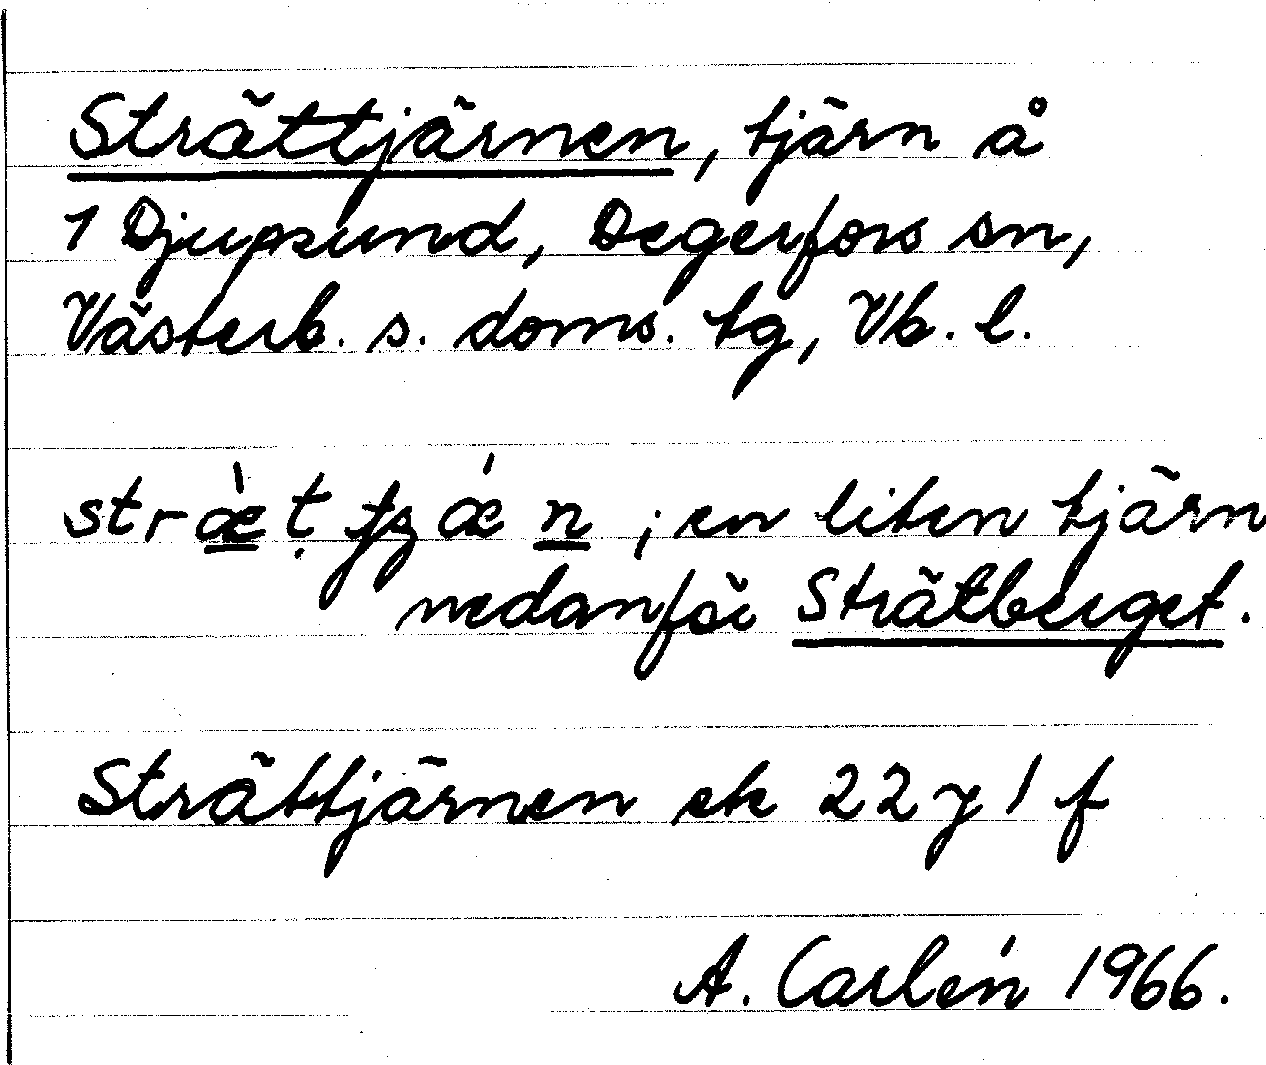 Strättjärnen, tjärn å
1 Djupsund, Degerfors sn,
Västerb. s. doms. tg, Vb. l.
; en liten tjärn
nedanför Strätberget.
Strättjärnen ek 22 y 1 f
A. Carlén 1966.